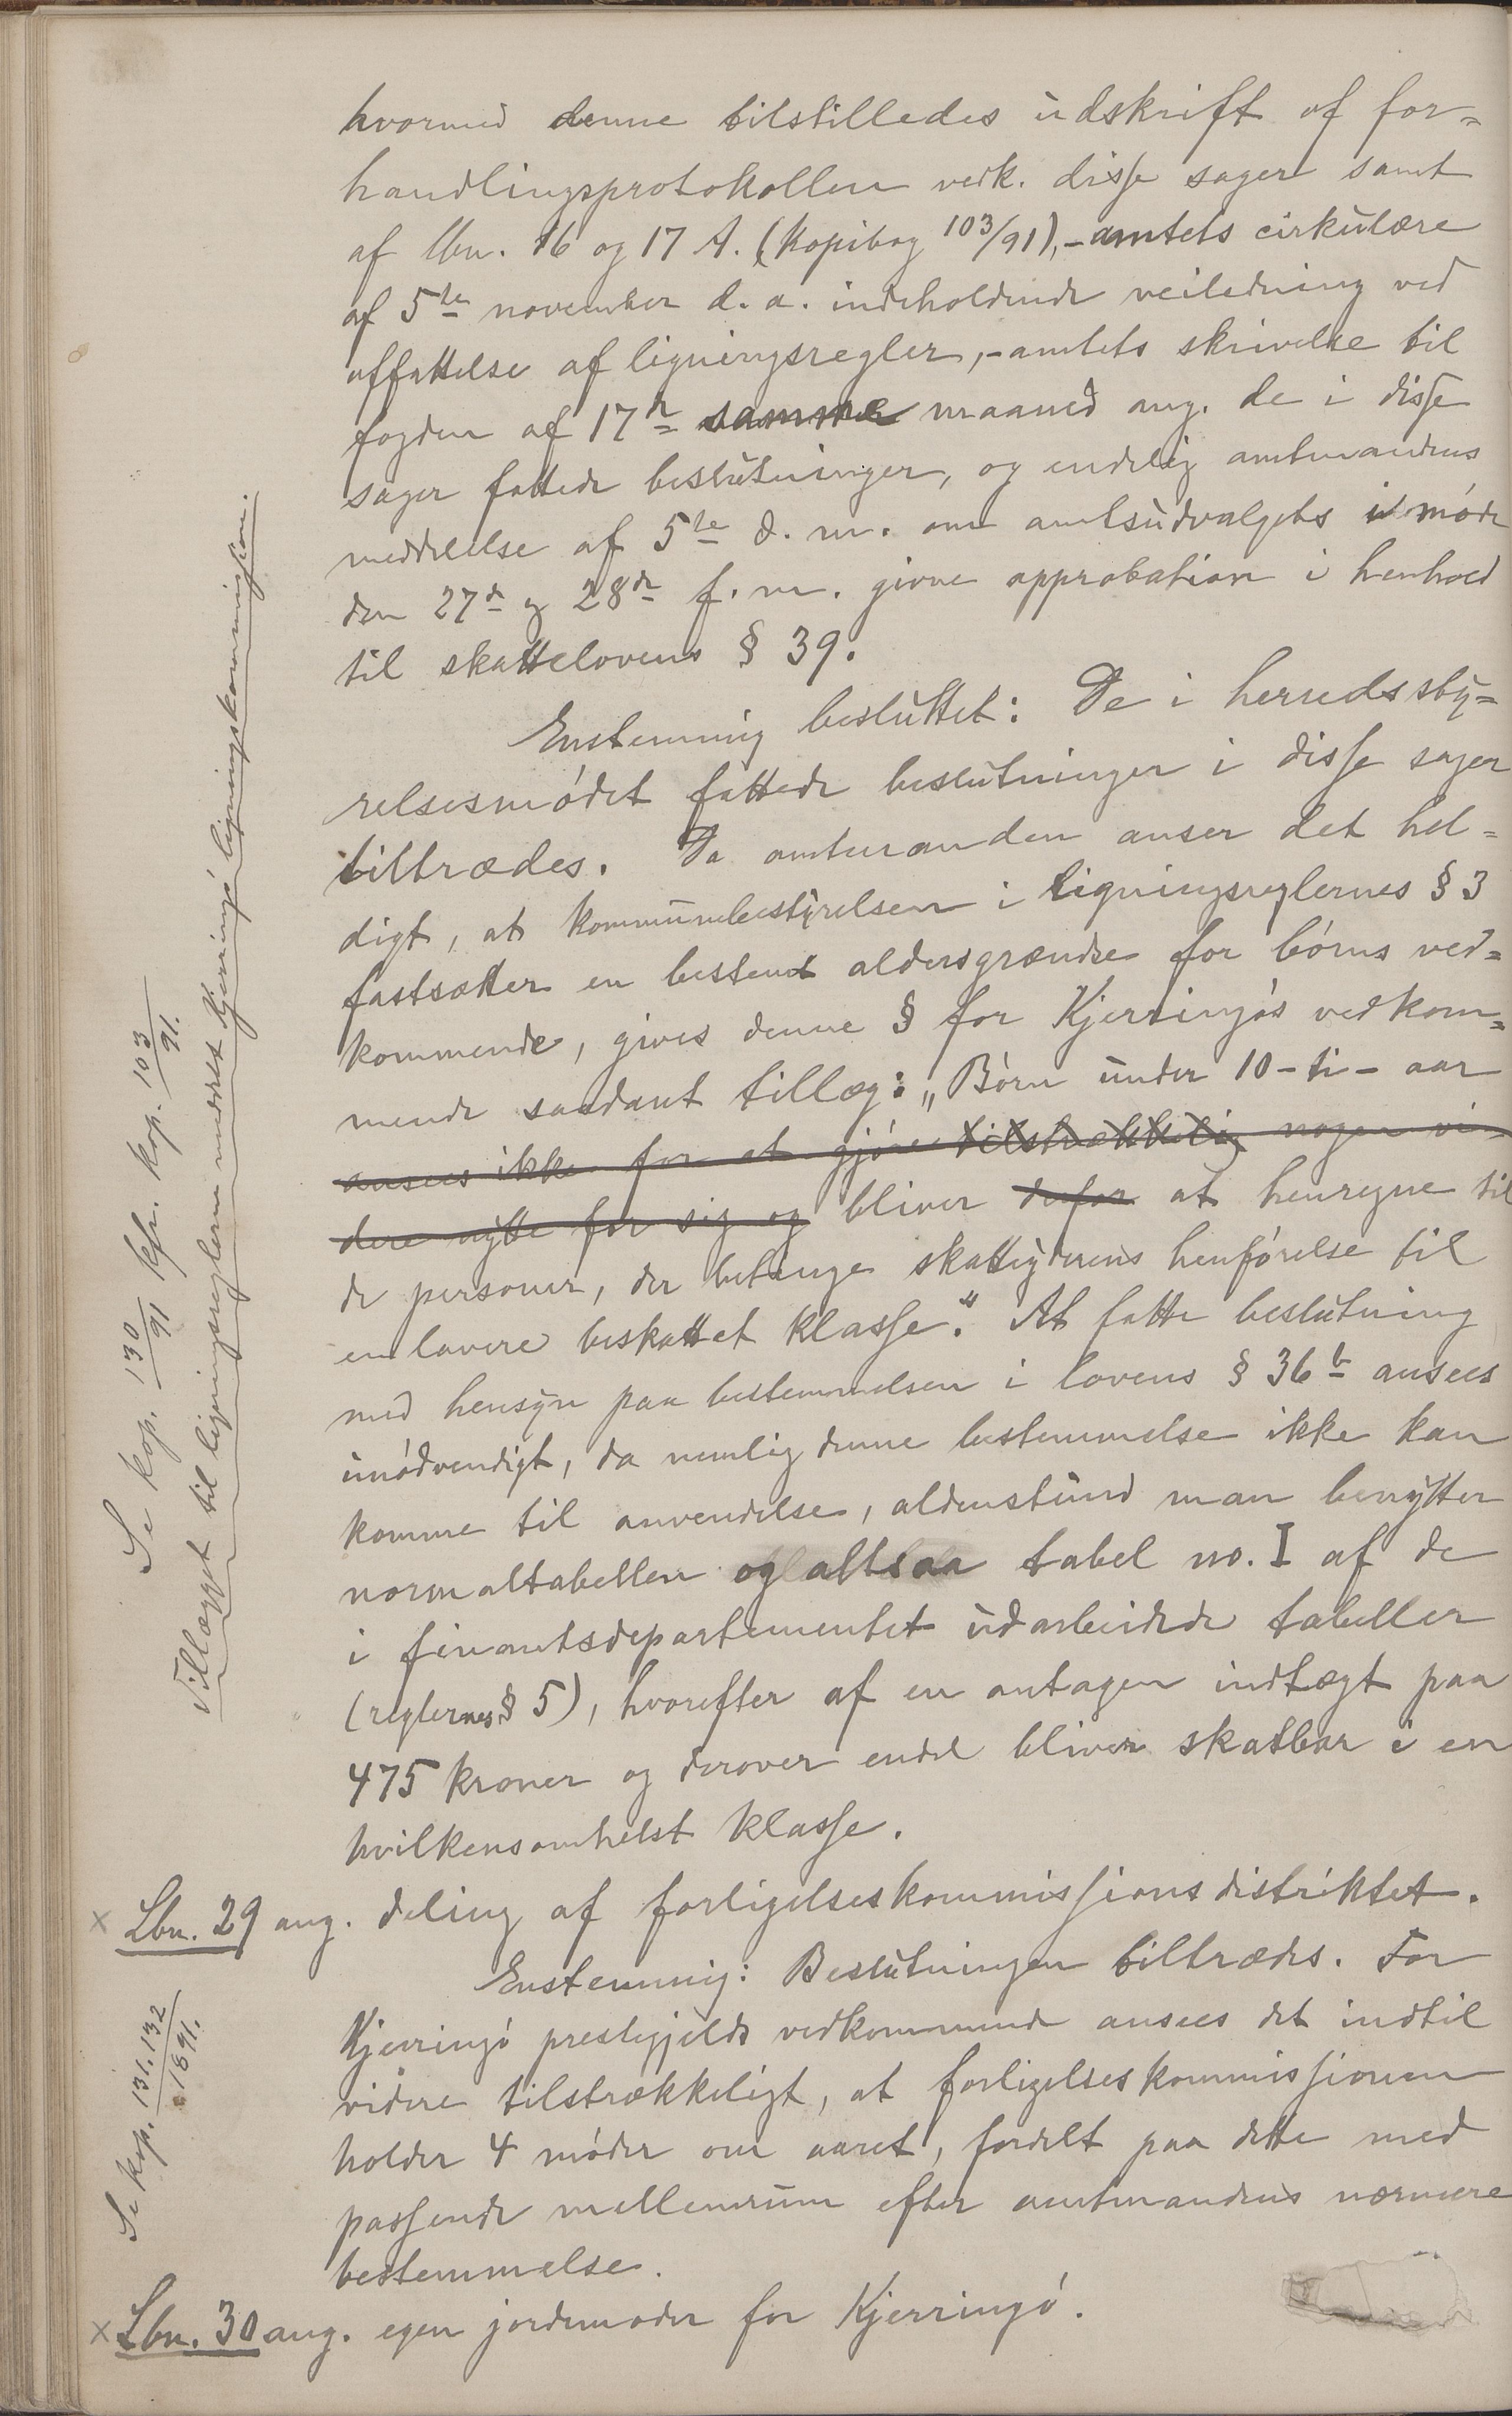 hvormed denne tilstilledes udskrift af for=
handlingsprotokollen vedk. disse sager samt
af lbn. 16 og 17 A. (Kopibog 103/91), - amtets cirkulære
af 5te november d. a. indeholdende veiledning ved
affattelse af ligningsregler, - amtets skrivelse til
fogden af 17de samme maaned ang. de i disse
sager fattede beslutninger, og endelig amtmandens
meddelelse af 5te d. m. om amtsudvalgets i møde
den 27de og 28de f. m. givne approbation i henhold
til skattelovens § 39.
Enstemmig besluttet: De i herredssty=
relsesmødet fattede beslutninger i disse sager
tiltrædes. Da amtmanden anser det hel=
digt, at kommunebestyrelsen i ligningsreglernes § 3
fastsætter en bestemt aldersgrændse for børns ved=
kommende, gives denne § for Kjerringøs vedkom=
mende saadant tillæg: „Børn under 10 - ti - aar
ansees ikke for at gjøre tilstrækkelig nogen vi=
dere nytte for sig og bliver derfor at henregne til
de personer, der betinge skatteyderens henførelse til
en lavere beskattet klasse.“ At fatte beslutning
med hensyn paa bestemmelsen i lovens § 36 b ansees
unødvendigt, da nemlig denne bestemmelse ikke kan
komme til anvendelse, aldenstund man benytter
normaltabellen og altsaa tabel no. I af de
i finantsdepartementet udarbeidede tabeller
(reglernes § 5), hvorefter af en antagen indtægt paa
475 kroner og derover endel bliver skatbar i en
hvilkensomhelst klasse.
Se kop. 130/91 kfr. kop. 103/91.
Tillægget til ligningsreglerne meddelt Kjerringø ligningskommission.
x Lbn. 29 ang. deling af forligelseskommissionsdistriktet.
Enstemmig: Beslutningen tiltrædes. For
Kjerringø prestegjelds vedkommende ansees det indtil
videre tilstrækkeligt, at forligelseskommissionen
holder 4 møder om aaret, fordelt paa dette med
passende mellemrum efter amtmandens nærmere
bestemmelse.
Se kop. 131.132/1891.
x Lbn. 30 ang. egen jordemoder for Kjerringø.